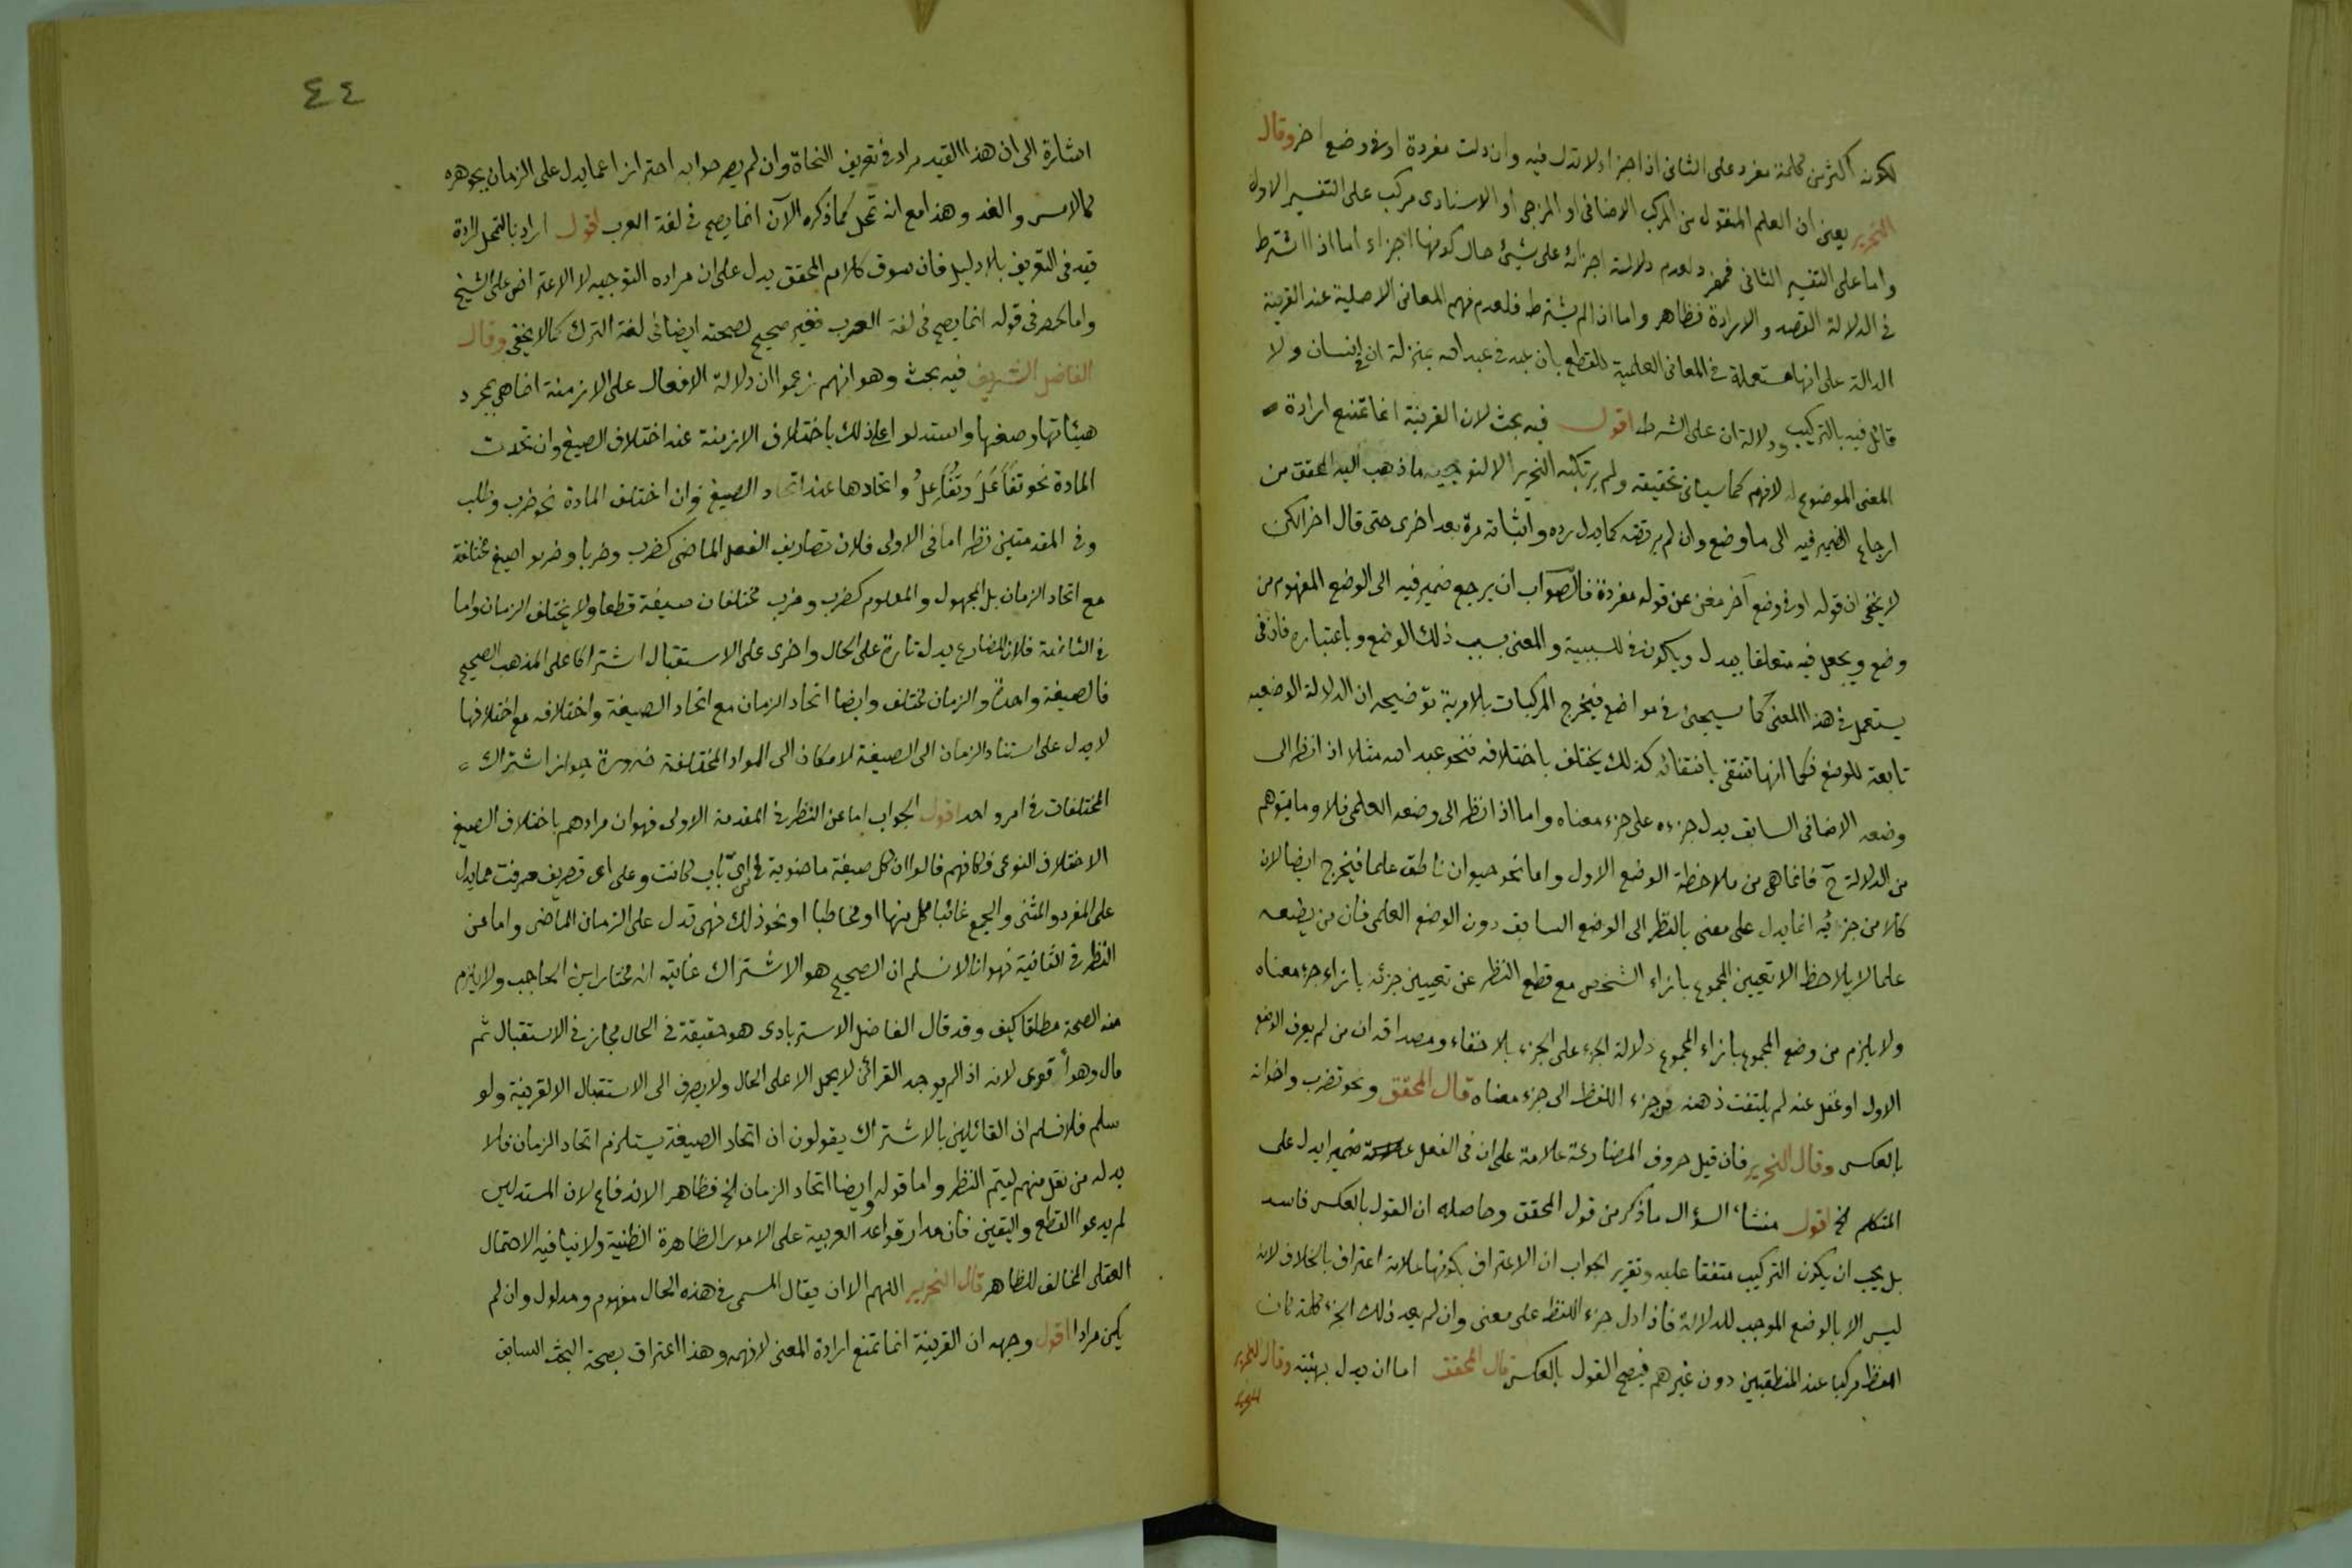 لكونه اكثر من كلمة مفرد على الثانى اذ اجزاؤه لا تدل فيه وان دلت مفردة او فى وضع اخر وقال
النحرير يعنى ان العلم المنقول من المركب الاضافى او المزجى او الاسنادى مركب على التفسير الاول
واما على التفسير الثانى فمفرد لعدم دلالة اجزائه على شيئ حال كونها اجزاء اما اذا اشترط
فى الدلالة القصد والارادة فظاهر واما اذا لم يشترط فلعدم فهم المعانى الاصلية عند القرينة
الدالة على انها مستعملة فى المعانى العلمية للقطع بان عبد فى عبد الله بمنزلة ان فى انسان ولا
قائل فيه بالتركيب ودلالة ان على الشرط اقول فيه بحث لان القرينة انما تمنع ارادة
المعنى الموضوع له لا فهم كما سياتى تحقيقه ولم يرتكبه النحرير الا لتوجيه ما ذهب اليه المحقق من
ارجاع الضمير فيه الى ما وضع وان لم يرتضه كما يدل رده واثباته مرة بعد اخرى حتى قال اخرا لكن
لا يخفى ان قوله او فى وضع آخر مغن عن قوله مفردة فالصواب ان يرجع ضمير فيه الى الوضع المفهوم من
وضع ويجعل فيه متعلقا بيدل ويكون فى للسببية والمعنى بسبب ذلك الوضع وباعتباره فان فى
يستعمل فى هذا المعنى كما سيجئ فى مواضع فيخرج المركبات بلا مرية توضيحه ان الدلالة الوضعية
تابعة للوضع فكما انها تنتفى بانتفائه كذلك يختلف باختلافه فنحو عبد الله مثلا اذا نظر الى
وضعه الاضافى السابق يدل جزءه على جزء معناه واما اذا نظر الى وضعه العلمى فلا وما يتوهم
من الدلالة ح فانما هى من ملاحظة الوضع الاول واما نحو حيوان ناطق علما فيخرج ايضا لان
كلا من جزئيه انما يدل على معنى بالنظر الى الوضع السابق دون الوضع العلمى فان من يضعه
علما لا يلاحظ الا تعيين المجموع بازاء الشخص مع قطع النظر عن تعيين جزئه بازاء جزء معناه
ولا يلزم من وضع المجموع بازاء المجموع دلالة الجزء على الجزء بلا خفاء ومصداقه ان من لم يعرف الوضع
الاول او غفل عنه لم يلتفت ذهنه من جزء اللفظ الى جزء معناه قال المحقق ونحو تضرب واخواته
بالعكس وقال النحرير فان قيل حروف المضارعة علامة على ان فى الفعل ضميرا يدل على
المتكلم الخ اقول منشاء السؤال ما ذكر من قول المحقق وحاصله ان القول بالعكس فاسد
بل يجب ان يكون التركيب متفقا عليه وتقرير الجواب ان الاعتراف بكونها علامة اعتراف بالخلاف لانه
ليس الا بالوضع الموجب للدلالة فاذا دل جزء اللفظ على معنى وان لم يعد ذلك الجزء كلمة كان
اللفظ مركبا عند المنطقيين دون غيرهم فيصح القول بالعكس قال المحقق اما ان يدل بهيئته وقال النحرير
٤٤
اشارة الى ان هذا القيد مراد فى تعريف النحاة وان لم يصرحوا به احترازا عما يدل على الزمان بجوهره
كالامس والغد وهذا مع انه تمحل كما ذكره الآن انما يصح فى لغة العرب اقول اراد بالتمحل ارادة
قيد فى التعريف بلا دليل فان سوق كلام المحقق يدل على ان مراده التوجيه لا الاعتراض على الشيخ
واما الحصر فى قوله انما يصح فى لغة العرب فغير صحيح لصحته ايضا فى لغة الترك كما لا يخفى وقال
الفاضل الشريف فيه بحث وهو انهم زعموا ان دلالة الافعال على الازمنة انما هى بمجرد
هيئاتها وصيغها واستدلوا على ذلك باختلاف الازمنة عند اختلاف الصيغ وان اتحدت
المادة نحو تَفَاعَلَ وتَفَاعُلُ واتحادها عند اتحاد الصيغ وان اختلف المادة نحو ضرب وطلب
وفى المقدمتين نظر اما فى الاولى فلان تصاريف الفعل الماضى كضرب وضربا وضربوا صيغ مختلفة
مع اتحاد الزمان بل المجهول والمعلوم كضرب وضرب مختلفان صيغة قطعا ولا يختلف الزمان واما
فى الثانية فلان المضارع يدل تارة على الحال واخرى على الاستقبال اشتراكا على المذهب الصحيح
فالصيغة واحدة والزمان مختلف وايضا اتحاد الزمان مع اتحاد الصيغة واختلافه مع اختلافها
لا يدل على استناد الزمان الى الصيغة لامكان الى المواد المختلفة ضرورة جواز اشتراك
المختلفات فى امر واحد اقول الجواب اما عن النظر فى المقدمة الاولى فهو ان مرادهم باختلاف الصيغ
الاختلاف النوعى فكانهم قالوا ان كل صيغة ماضوية فى اىّ باب كانت وعلى اى تصريف صرفت مما يدل
على المفرد والمثنى والجمع غائبا كل منها او مخاطبا او نحو ذلك فهى تدل على الزمان الماضى واما عن
النظر فى الثانية فهو انا لا نسلم ان الصحيح هو الاشتراك غايته انه مختار ابن الحاجب ولا يلزم
منه الصحة مطلقا كيف وقد قال الفاضل الاسترابادى هو حقيقة فى الحال مجاز فى الاستقبال ثم
قال وهو أقوى لانه اذا لم يوجد القرائن لا يحمل الا على الحال ولا يصرف الى الاستقبال الا لقرينة ولو
سلم فلا نسلم ان القائلين بالاشتراك يقولون ان اتحاد الصيغة يستلزم اتحاد الزمان فلا
بد له من نقل منهم ليتم النظر واما قوله وايضا اتحاد الزمان الخ فظاهر الاندفاع لان المستدلين
لم يدعوا القطع واليقين فان مدار قواعد العربية على الامور الظاهرة الظنية ولا ينافيه الاحتمال
العقلى المخالف للظاهر قال النحرير اللهم الا ان يقال المسمى فى هذه الحال مفهوم ومدلول وان لم
يكن مرادا اقول وجهه ان القرينة انما تمنع ارادة المعنى لا فهمه وهذا اعتراف بصحة البحث السابق